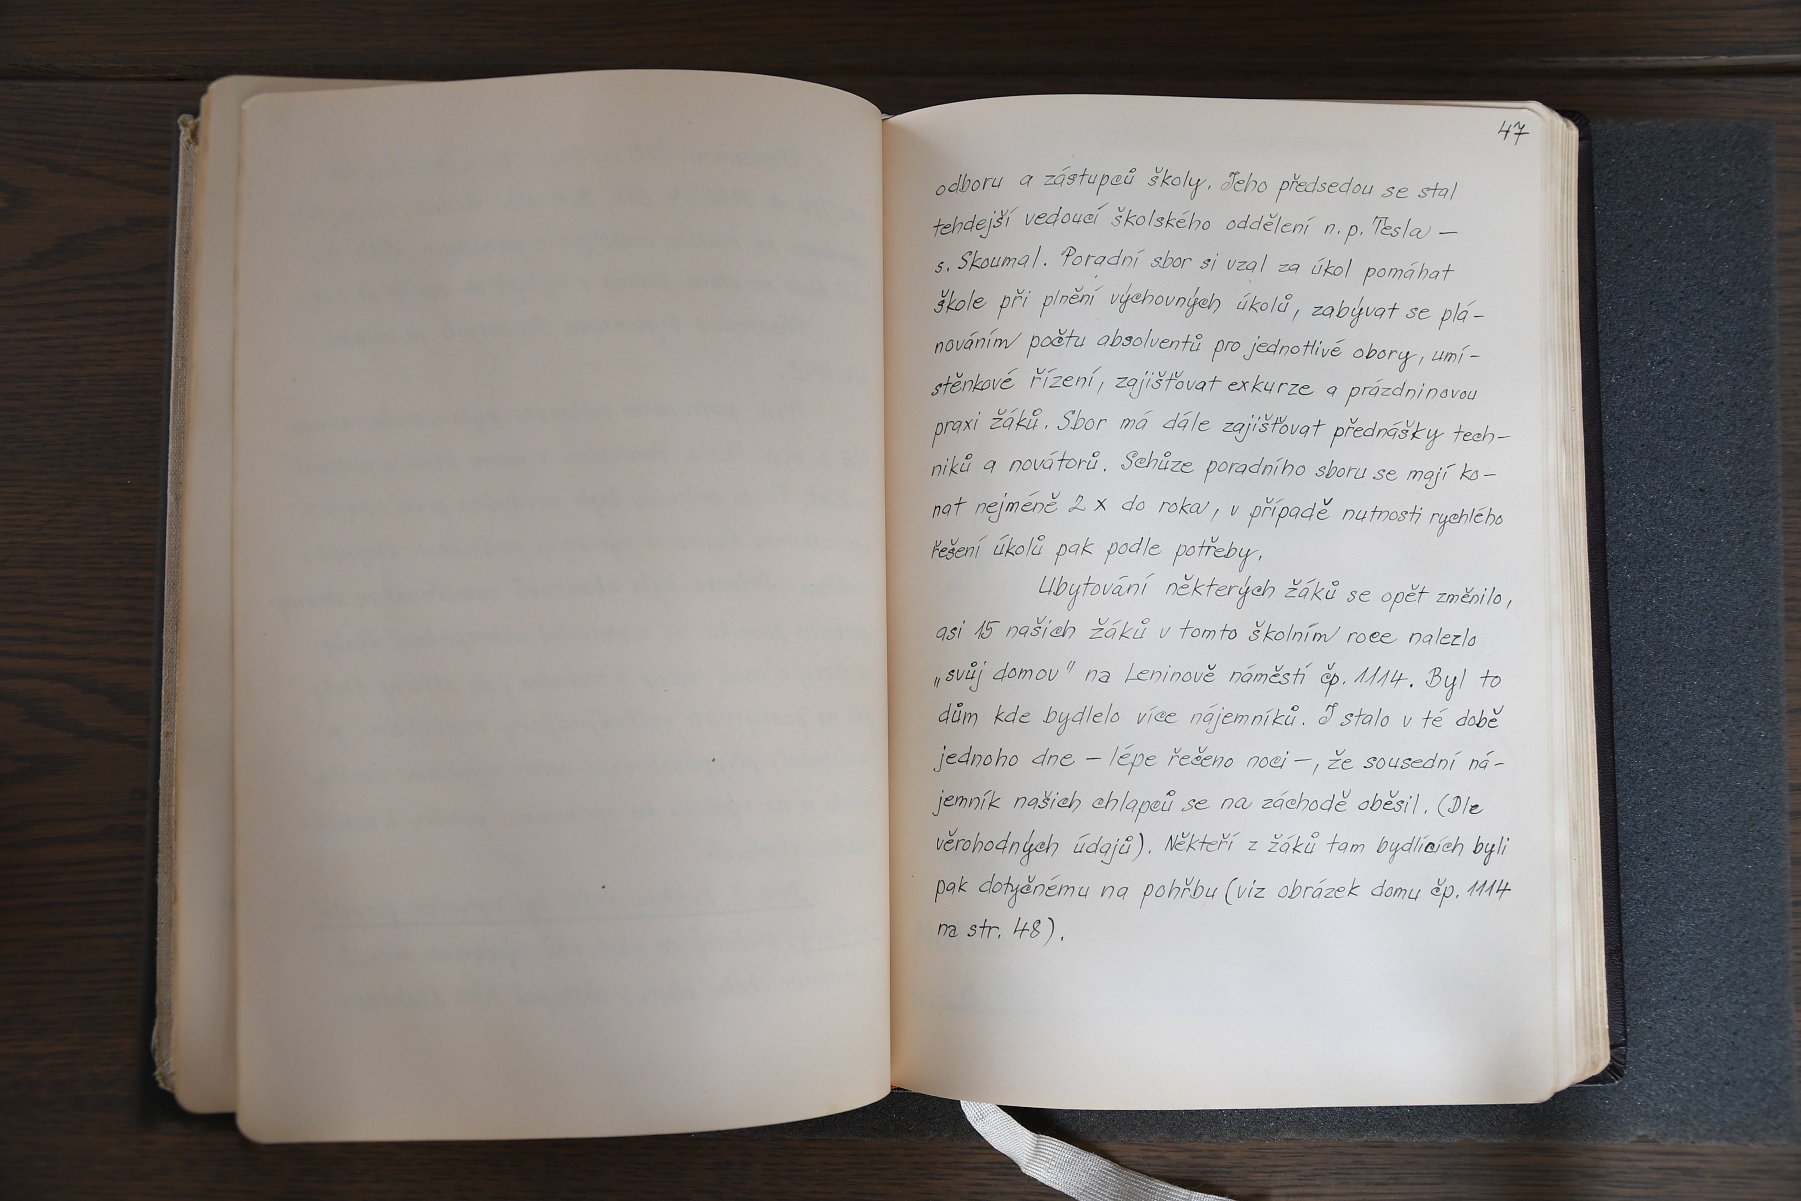 47
odboru a zástupců školy. Jeho předsedou se stal
tehdejší vedoucí školského oddělení n.p. Tesla —
s. Skoumal. Poradní sbor si vzal za úkol pomáhat
škole při plnění výchovných úkolů, zabývat se plá-
nováním počtu absolventů pro jednotlivé obory, umí-
stěnkové řízení, zajišťovat exkurze a prázdninovou
praxi žáků. Sbor má dále zajišťovat přednášky tech-
niků a novátorů. Schůze poradního sboru se mají ko-
nat nejméně 2 x do roka, v případě nutnosti rychlého
řešení úkolů pak podle potřeby.
Ubytování některých žáků se opět změnilo,
asi 15 našich žáků v tomto školním roce nalezlo
„svůj domov" na Leninově náměstí čp. 1114. Byl to
dům kde bydlelo více nájemníků. I stalo v té době
jednoho dne — lépe řečeno noci —, že sousední ná-
jemník našich chlapců se na záchodě oběsil. (Dle
věrohodných údajů). Někteří z žáků tam bydlících byli
pak dotyčnému na pohřbu (viz obrázek domu čp. 1114
na str. 48).